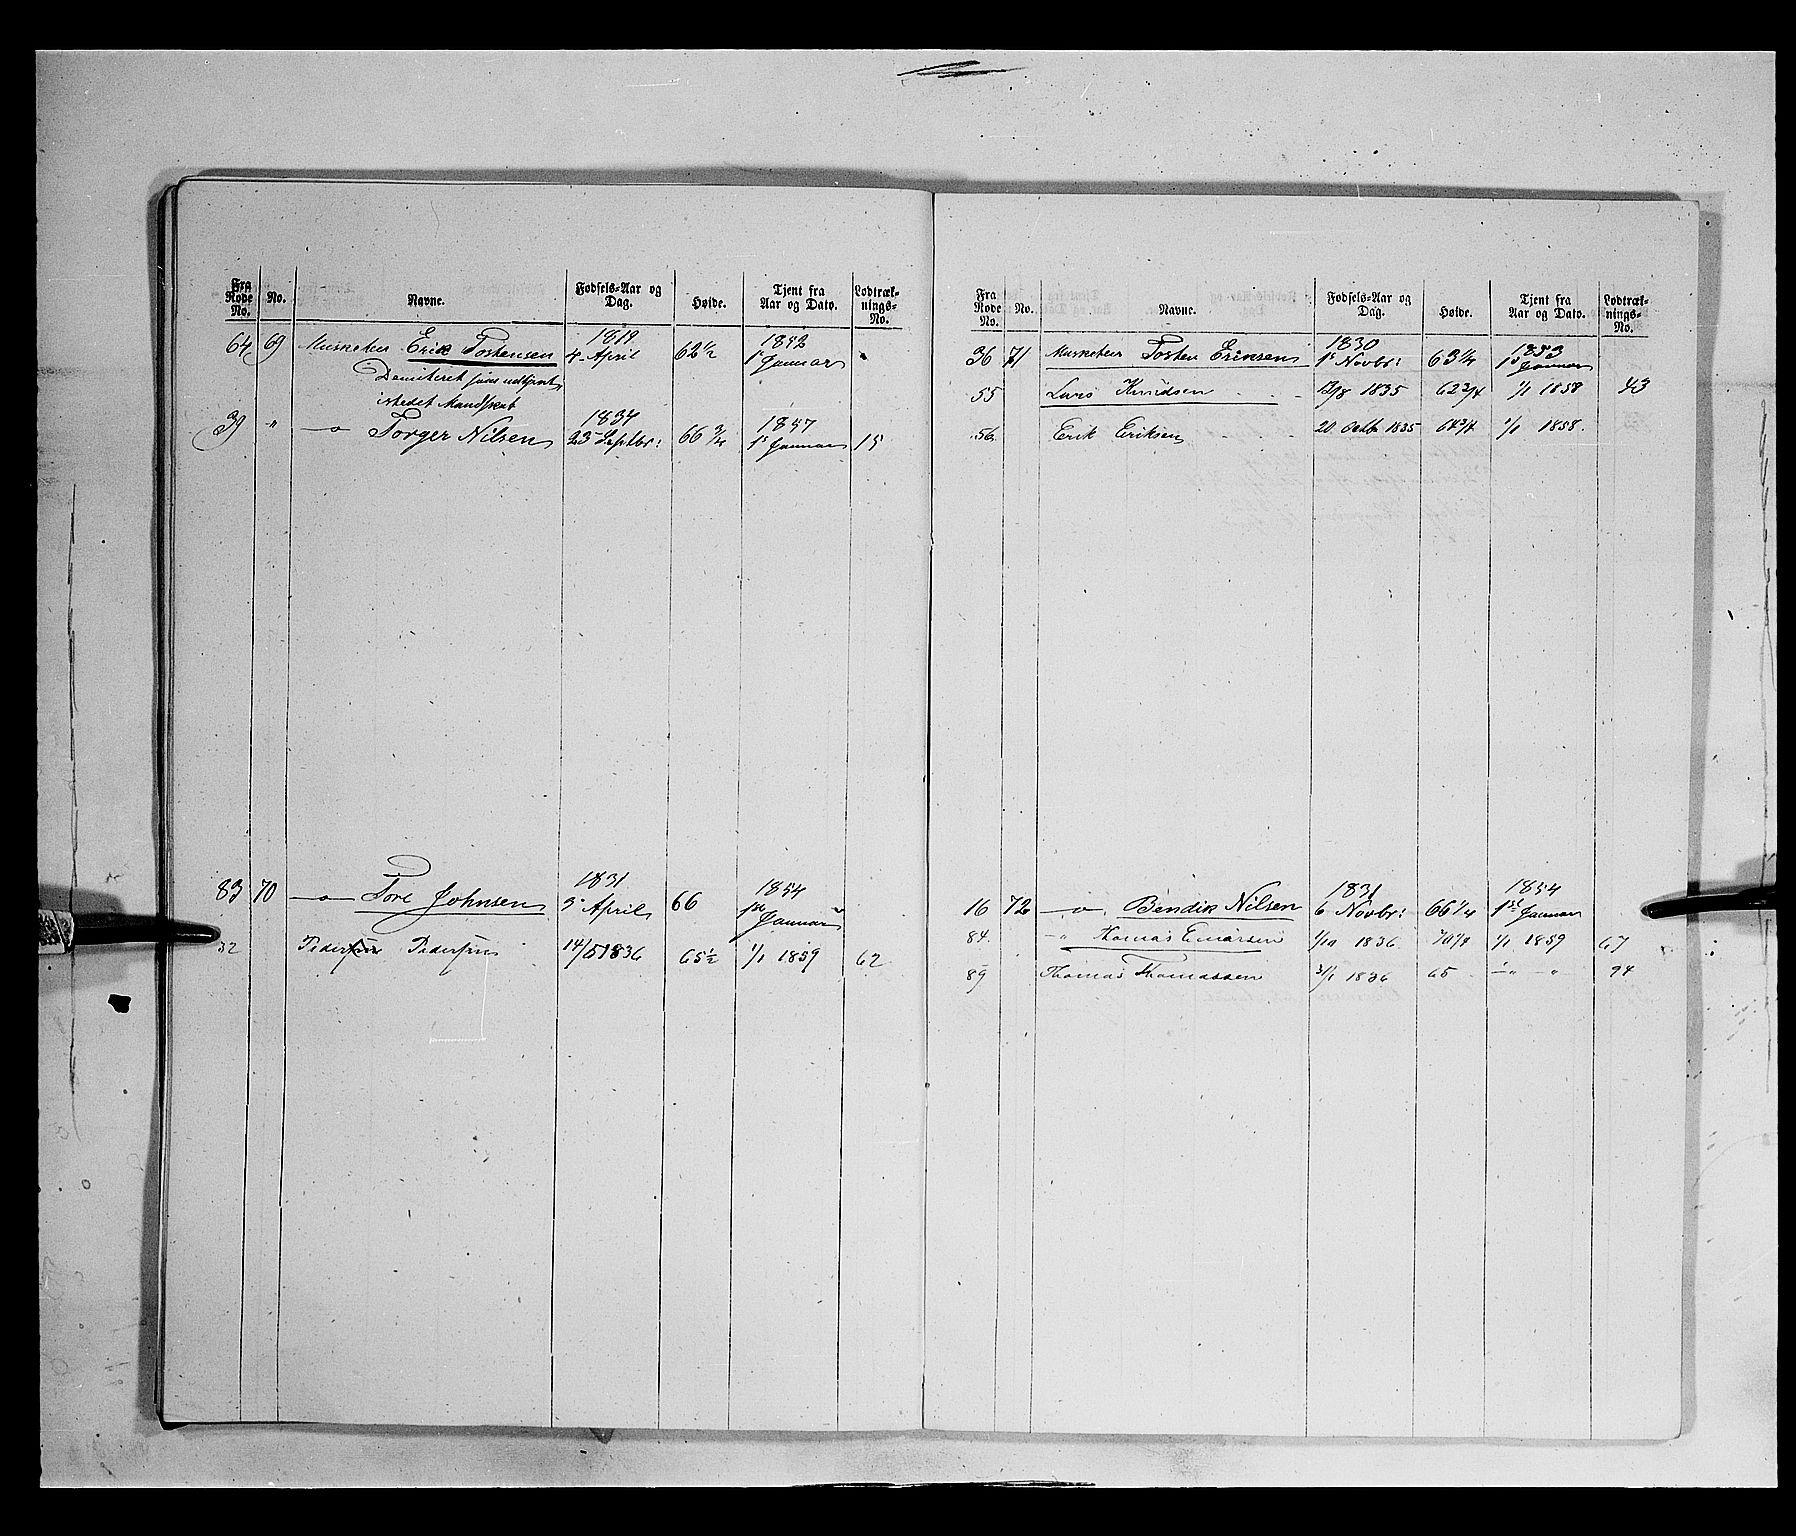 Fra Rode No. No. Navne. Fødsels-Aar og Dag. Høide. Tjent fra Aar og Dato. Lodtræk-nings-No.
64 69 Musketeer Erik Tostensen 1819 4 April 62 1/2 1852 1 Januar
Demiteret som udtjent
istedet Mandskab
39 " —o— Torger Nilsen 1834 23 Septbr: 66 3/4 1857 1 Januar 15
83 70 —o— Tore Johnsen 1831 5 April 66 1854 1ste Januar
32 Pedersen Pedersen 14/5 1836 65 1/2 1/1 1859 62
Fra Rode No. No. Navne. Fødsels-Aar og Dag. Høide. Tjent fra Aar og Dato. Lodtræk-nings-No.
36 71 Musketeer Tosten Eriksen 1830 1 Novbr: 63 1/4 1853 1 Januar
55 Lars Knudsen 12/8 1835 62 3/4 1/1 1858 43
56 Erik Eriksen 20 Octb 1835 64 3/4 1/1 1858.
16 72 —o— Bendik Nilsen 1831 6 Novbr: 66 1/4 1854 1ste Januar
84. " Thomas Einarsen 1/10 1836 70 1/4 1/1 1859 67
89 Thomas Thomassen 3/1 1836 65 " " 94